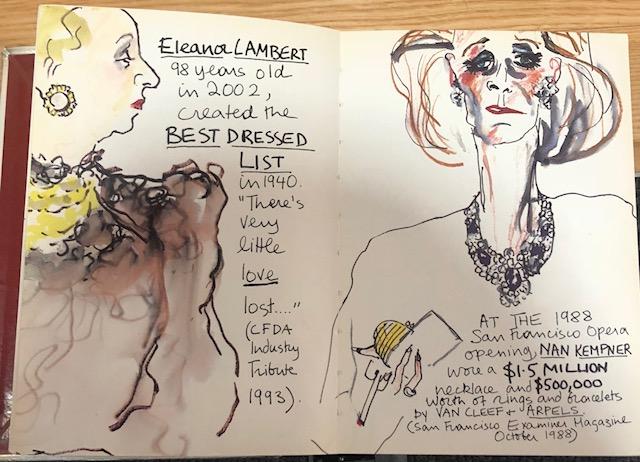 Eleanor LAMBERT
98 years old
in 2002,
created the
BEST DRESSED
LIST
in 1940.
"There's
very
little
love
lost...."
(CFDA
Industry
Tribute
1993).
AT THE 1988
San Francisco Opera
opening, NAN KEMPNER
wore a $1.5 MILLION
necklace and $500,000
worth of rings and bracelets
by VAN CLEEF + ARPELS.
(San Francisco Examiner Magazine
October 1988)